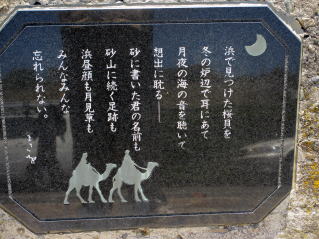 浜で見つけた桜貝を
冬の炉辺で耳にあて
月夜の海の音を聴いて
想出に耽る――
砂に書いた君の名前も
砂山に続く足跡も
浜昼顔も月見草も
みんなみんな
忘れられない。